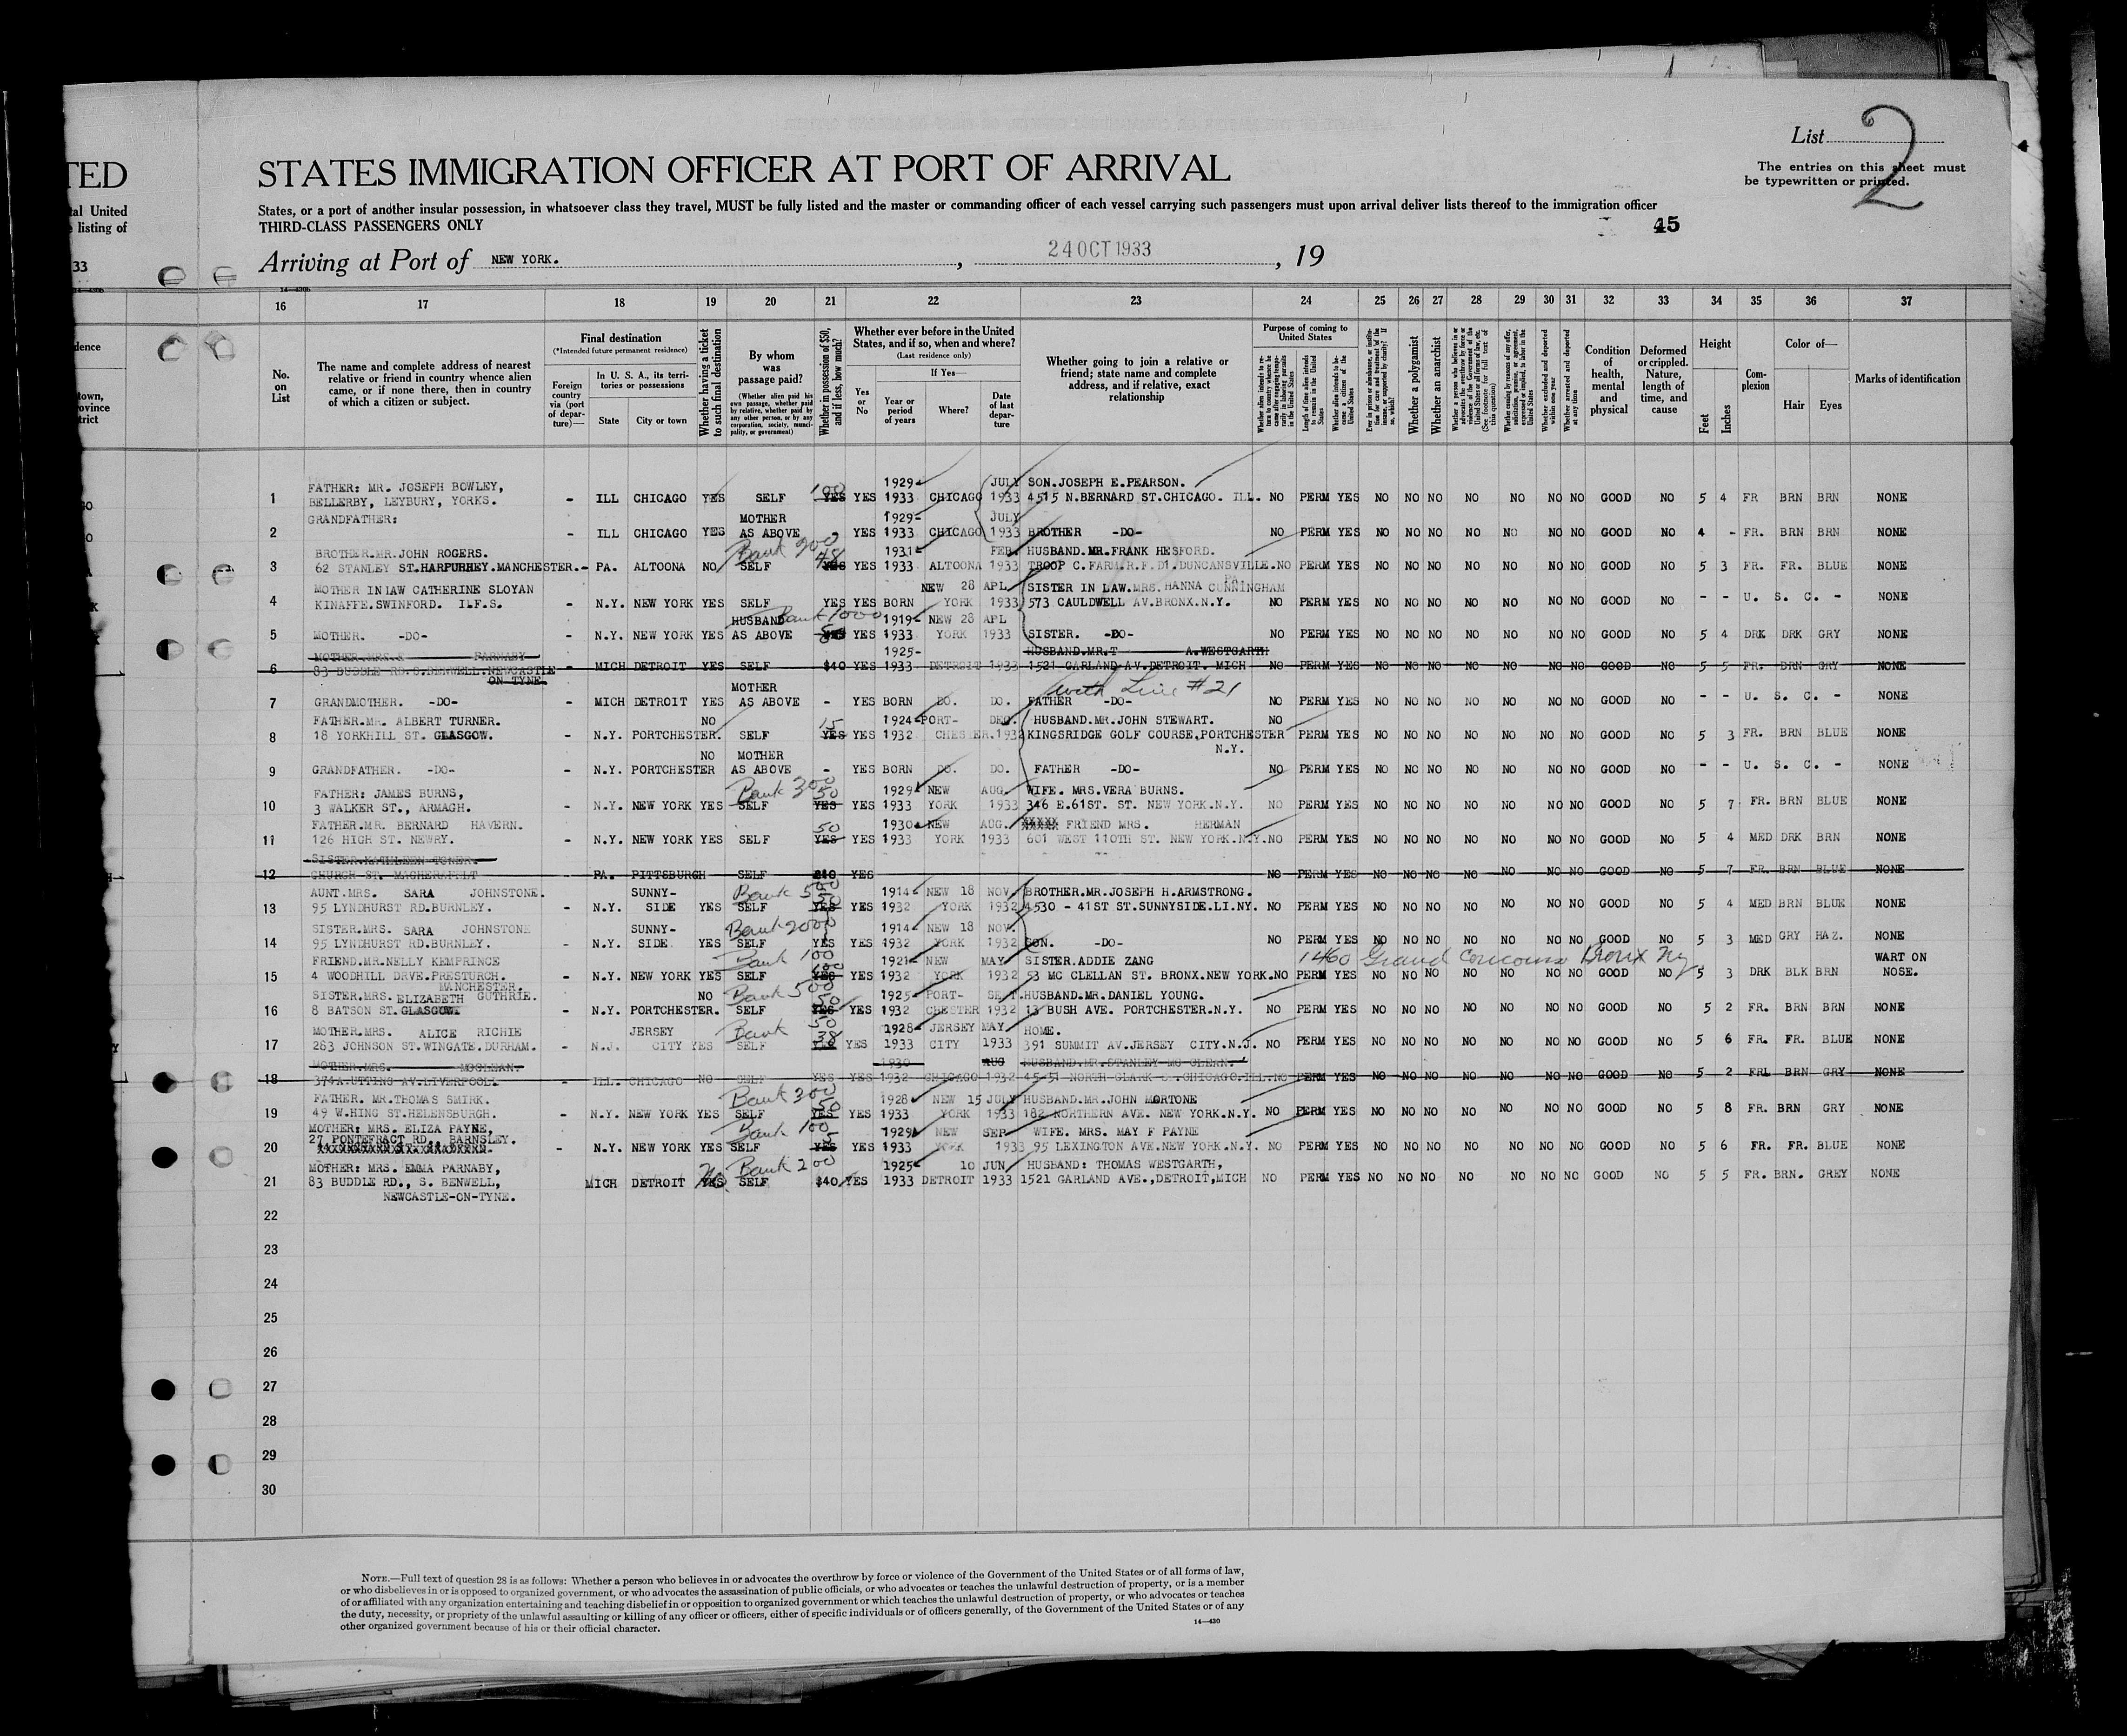 List 2
The entries on this sheet must
be typewritten or printed.
TED
STATES IMMIGRATION OFFICER AT PORT OF ARRIVAL
tal United
listing of
States, or a port of another insular possession, in whatsoever class they travel, MUST be fully listed and the master or commanding officer of each vessel carrying such passengers must upon arrival deliver lists thereof to the immigration officer
THIRD-CLASS PASSENGERS ONLY
45
33
Arriving at Port of NEW YORK. , 24 OCT 1933 , 19
16 17 18 19 20 21 22 23 24 25 26 27 28 29 30 31 32 33 34 35 36 37
No. on List
The name and complete address of nearest relative or friend in country whence alien came, or if none there, then in country of which a citizen or subject.
Final destination
(*Intended future permanent residence)
Foreign country via (port of departure)—
In U. S. A., its territories or possessions
State
City or town
Whether having a ticket to such final destination
By whom was passage paid?
(Whether alien paid his own passage, whether paid by relative, whether paid by any other person, or by any corporation, society, municipality, or government)
Whether in possession of $50, and if less, how much?
Whether ever before in the United States, and if so, when and where?
(Last residence only)
Yes or No
If Yes—
Year or period of years
Where?
Date of last departure
Whether going to join a relative or friend; state name and complete address, and if relative, exact relationship
Purpose of coming to United States
Length of time alien intends to remain in the United States
Whether alien intends to become a citizen of the United States
Whether a polygamist
Whether an anarchist
Whether excluded and deported within one year
Whether arrested and deported at any time
Condition of health, mental and physical
Deformed or crippled. Nature, length of time, and cause
Height
Feet
Inches
Complexion
Color of—
Hair
Eyes
Marks of identification
FATHER: MR. JOSEPH BOWLEY, 1929- JULY SON.JOSEPH E.PEARSON.
1 BELLERBY, LEYBURY, YORKS. - ILL CHICAGO YES SELF 100 YES YES 1933 CHICAGO 1933 4515 N.BERNARD ST.CHICAGO. ILL. NO PERM YES NO NO NO NO NO NO NO GOOD NO 5 4 FR BRN BRN NONE
GRANDFATHER: MOTHER 1929- JULY
2 - ILL CHICAGO YES AS ABOVE - YES 1933 CHICAGO 1933 BROTHER -DO- NO PERM YES NO NO NO NO NO NO NO GOOD NO 4 - FR. BRN BRN NONE
BROTHER.MR.JOHN ROGERS. Bank 200 48 1931- FEB HUSBAND.MR.FRANK HESFORD.
3 62 STANLEY ST.HARPURHEY.MANCHESTER.- PA. ALTOONA NO SELF YES YES 1933 ALTOONA 1933 TROOP C.FARM.R.F.D1.DUNCANSVILLE. PA NO PERM YES NO NO NO NO NO NO NO GOOD NO 5 3 FR. FR. BLUE NONE
MOTHER IN LAW CATHERINE SLOYAN NEW 28 APL SISTER IN LAW.MRS.HANNA CUNNINGHAM
4 KINAFFE.SWINFORD. I.F.S. - N.Y. NEW YORK YES SELF YES YES BORN YORK 1933 573 CAULDWELL AV.BRONX.N.Y. NO PERM YES NO NO NO NO NO NO NO GOOD NO - - U. S. C. - NONE
HUSBAND Bank 1000 1919- NEW 28 APL
5 MOTHER. -DO- - N.Y. NEW YORK YES AS ABOVE 50 YES YES 1933 YORK 1933 SISTER. -DO- NO PERM YES NO NO NO NO NO NO NO GOOD NO 5 4 DRK DRK GRY NONE
MOTHER.MRS.E PARNABY 1925- HUSBAND.MR.T A.WESTGARTH
6 83 BUDDLE RD.S.BENWELL.NEWCASTLE - MICH DETROIT YES SELF $40 YES 1933 DETROIT 1933 1521 GARLAND AV.DETROIT. MICH NO PERM YES NO NO NO NO NO NO NO GOOD NO 5 5 FR. BRN GRY NONE
ON TYNE.
MOTHER with Line #21
7 GRANDMOTHER. -DO- - MICH DETROIT YES AS ABOVE - YES BORN DO. DO. FATHER -DO- NO PERM YES NO NO NO NO NO NO NO GOOD NO - - U. S. C. - NONE
FATHER.MR. ALBERT TURNER. NO 15 1924- PORT- DEC. HUSBAND.MR.JOHN STEWART. NO
8 18 YORKHILL ST. GLASGOW. - N.Y. PORTCHESTER. SELF YES YES 1932 CHESTER. 1932 KINGSRIDGE GOLF COURSE,PORTCHESTER PERM YES NO NO NO NO NO NO NO GOOD NO 5 3 FR. BRN BLUE NONE
NO MOTHER N.Y.
9 GRANDFATHER. -DO- - N.Y. PORTCHESTER AS ABOVE - YES BORN DO. DO. FATHER -DO- NO PERM YES NO NO NO NO NO NO NO GOOD NO - - U. S. C. - NONE
FATHER: JAMES BURNS, Bank 300 50 1929- NEW AUG. WIFE. MRS.VERA BURNS.
10 3 WALKER ST., ARMAGH. - N.Y. NEW YORK YES SELF YES YES 1933 YORK 1933 346 E.61ST. ST. NEW YORK.N.Y. NO PERM YES NO NO NO NO NO NO NO GOOD NO 5 7 FR. BRN BLUE NONE
FATHER.MR. BERNARD HAVERN. 50 1930- NEW AUG. XXXXX FRIEND MRS. HERMAN
11 126 HIGH ST. NEWRY. - N.Y. NEW YORK YES SELF YES YES 1933 YORK 1933 601 WEST 110TH ST. NEW YORK.N.Y. NO PERM YES NO NO NO NO NO NO NO GOOD NO 5 4 MED DRK BRN NONE
SISTER.KATHLEEN TONER.
12 CHURCH ST. MAGHERAFELT - PA. PITTSBURGH SELF YES NO PERM YES NO NO NO NO NO NO NO GOOD NO 5 7 FR. BRN BLUE NONE
AUNT.MRS. SARA JOHNSTONE. SUNNY- Bank 500 50 1914- NEW 18 NOV. BROTHER.MR.JOSEPH H.ARMSTRONG.
13 95 LYNDHURST RD.BURNLEY. - N.Y. SIDE YES SELF YES YES 1932 YORK 1932 4530 - 41ST ST.SUNNYSIDE.LI.NY. NO PERM YES NO NO NO NO NO NO NO GOOD NO 5 4 MED BRN BLUE NONE
SISTER.MRS. SARA JOHNSTONE SUNNY- Bank 2000 1914- NEW 18 NOV.
14 95 LYNDHURST RD.BURNLEY. - N.Y. SIDE. YES SELF YES YES 1932 YORK 1932 SON. -DO- NO PERM YES NO NO NO NO NO NO NO GOOD NO 5 3 MED GRY HAZ. NONE
FRIEND.MR.NELLY KEMPRINCE Bank 1921- NEW MAY SISTER.ADDIE ZANG 1460 Grand Concourse Bronx Ny WART ON
15 4 WOODHILL DRVE.PRESTURCH. - N.Y. NEW YORK YES SELF YES YES 1932 YORK 1932 53 MC CLELLAN ST. BRONX.NEW YORK. NO PERM YES NO NO NO NO NO NO NO GOOD NO 5 3 DRK BLK BRN NOSE.
MANCHESTER.
SISTER.MRS. ELIZABETH GUTHRIE. NO Bank 500 50 1925- PORT- SEPT. HUSBAND.MR.DANIEL YOUNG.
16 8 BATSON ST.GLASGOW - N.Y. PORTCHESTER. SELF YES YES 1932 CHESTER 1932 13 BUSH AVE. PORTCHESTER.N.Y. NO PERM YES NO NO NO NO NO NO NO GOOD NO 5 2 FR. BRN BRN NONE
MOTHER.MRS. ALICE RICHIE JERSEY Bank 50 38 1928- JERSEY MAY HOME.
17 263 JOHNSON ST.WINGATE.DURHAM. - N.J. CITY YES SELF YES YES 1933 CITY 1933 391 SUMMIT AV.JERSEY CITY.N.J. NO PERM YES NO NO NO NO NO NO NO GOOD NO 5 6 FR. FR. BLUE NONE
MOTHER.MRS. MCCLENAN. 1930 AUG HUSBAND.MR.STANLEY MC CLENN.
18 374A.UTTING AV.LIVERPOOL. - ILL. CHICAGO NO SELF YES YES 1932 CHICAGO 1932 45-51 NORTH CLARK ST.CHICAGO.ILL. NO PERM YES NO NO NO NO NO NO NO GOOD NO 5 2 FRL BRN GRY NONE
FATHER. MR.THOMAS SMIRK. Bank 300 50 1928- NEW 15 JULY HUSBAND.MR.JOHN MORTONE
19 49 W.HING ST.HELENSBURGH. - N.Y. NEW YORK YES SELF YES YES 1933 YORK 1933 182 NORTHERN AVE. NEW YORK.N.Y. NO PERM YES NO NO NO NO NO NO NO GOOD NO 5 8 FR. BRN GRY NONE
MOTHER: MRS. ELIZA PAYNE, Bank 100 1929- NEW SEP WIFE. MRS. MAY F PAYNE
27 PONTEFRACT RD., BARNSLEY.
20 - N.Y. NEW YORK YES SELF YES YES 1933 YORK 1933 95 LEXINGTON AVE.NEW YORK.N.Y. NO PERM YES NO NO NO NO NO NO NO GOOD NO 5 6 FR. FR. BLUE NONE
MOTHER: MRS. EMMA PARNABY, No Bank 200 1925- 10 JUN HUSBAND: THOMAS WESTGARTH,
21 83 BUDDLE RD., S. BENWELL, MICH DETROIT YES SELF $40 YES 1933 DETROIT 1933 1521 GARLAND AVE.,DETROIT,MICH NO PERM YES NO NO NO NO NO NO NO GOOD NO 5 5 FR. BRN. GREY NONE
NEWCASTLE-ON-TYNE.
22
23
24
25
26
27
28
29
30
NOTE.—Full text of question 28 is as follows: Whether a person who believes in or advocates the overthrow by force or violence of the Government of the United States or of all forms of law,
or who disbelieves in or is opposed to organized government, or who advocates the assassination of public officials, or who advocates or teaches the unlawful destruction of property, or is a member
of or affiliated with any organization entertaining and teaching disbelief in or opposition to organized government or which teaches the unlawful destruction of property, or who advocates or teaches
the duty, necessity, or propriety of the unlawful assaulting or killing of any officer or officers, either of specific individuals or of officers generally, of the Government of the United States or of any
other organized government because of his or their official character.
14—430